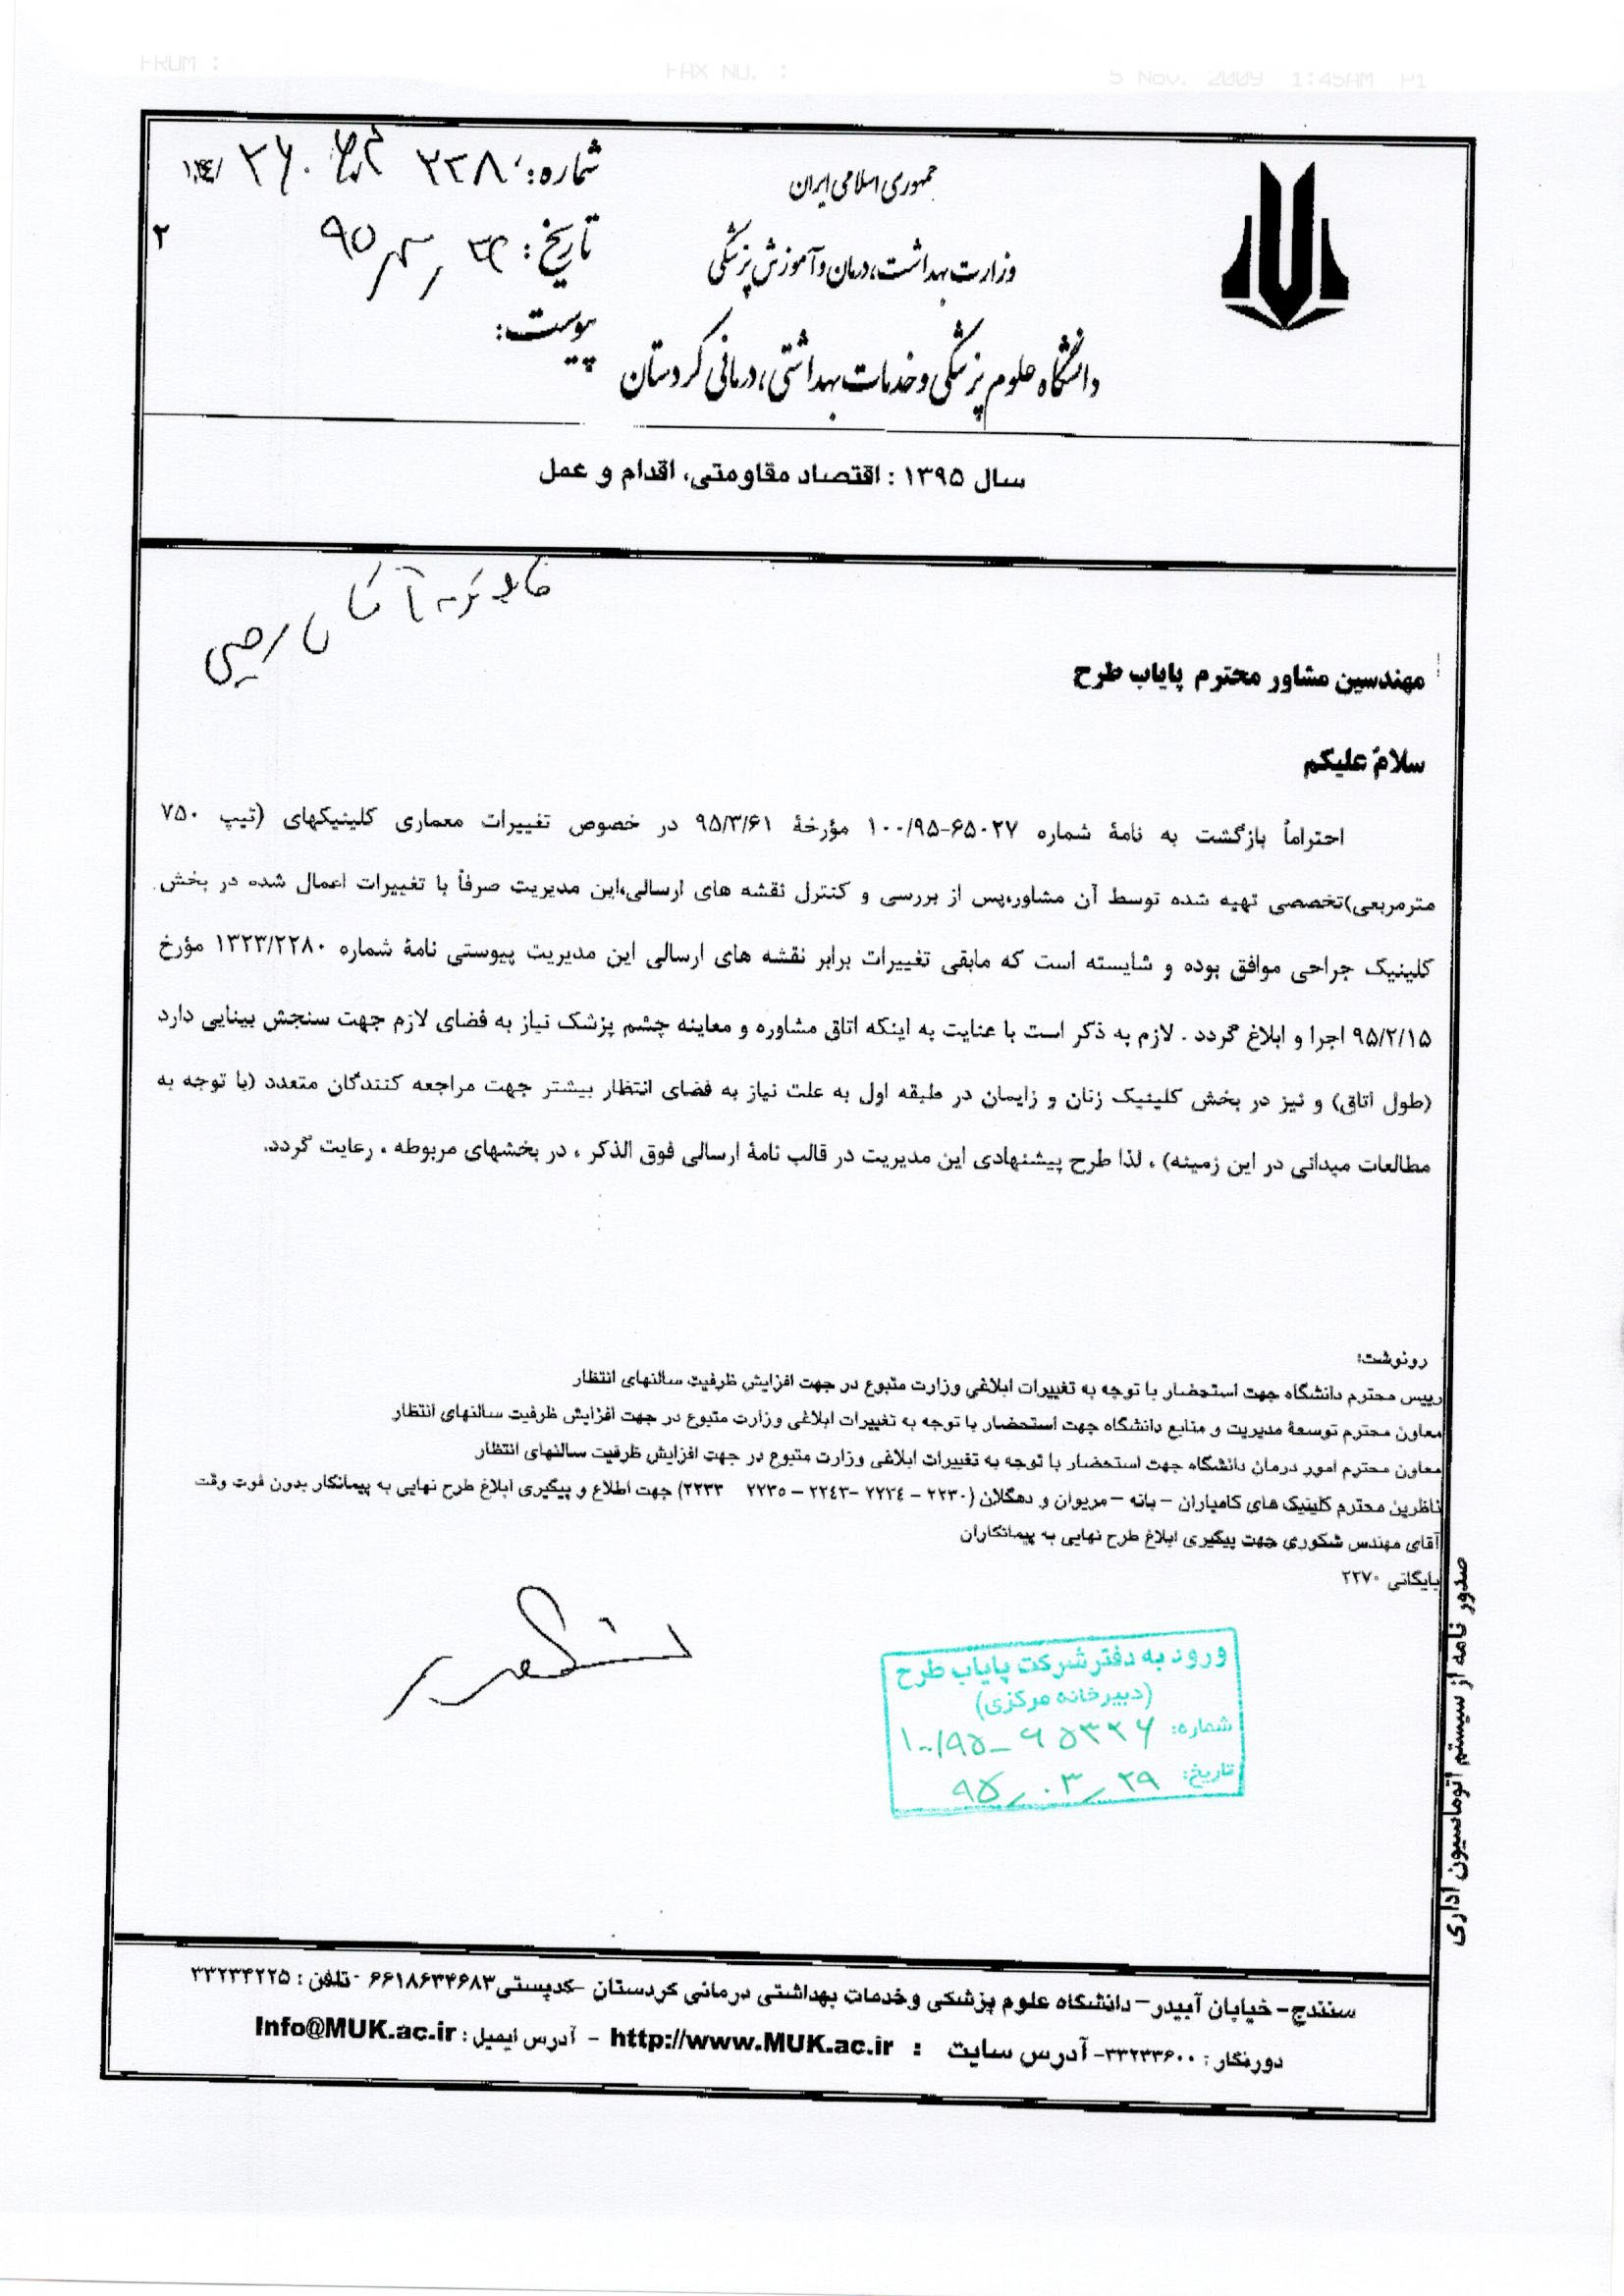 FROM :
FAX NO. :
5 Nov. 2009 1:45AM P1
جمهوری اسلامی ایران
وزارت بهداشت، درمان و آموزش پزشکی
دانشگاه علوم پزشکی و خدمات بهداشتی، درمانی کردستان
شماره:
تاریخ:
پیوست:
۲
سال ۱۳۹۵ : اقتصاد مقاومتی، اقدام و عمل
مهندسین مشاور محترم پایاب طرح
سلامٌ علیکم
احتراماً بازگشت به نامهٔ شماره ۶۵۰۲۷-۱۰۰/۹۵ مؤرخهٔ ۹۵/۳/۶۱ در خصوص تغییرات معماری کلینیکهای (تیپ ۷۵۰
مترمربعی)تخصصی تهیه شده توسط آن مشاور،پس از بررسی و کنترل نقشه های ارسالی،این مدیریت صرفاً با تغییرات اعمال شده در بخش
کلینیک جراحی موافق بوده و شایسته است که مابقی تغییرات برابر نقشه های ارسالی این مدیریت پیوستی نامهٔ شماره ۱۳۲۳/۲۲۸۰ مؤرخ
۹۵/۲/۱۵ اجرا و ابلاغ گردد . لازم به ذکر است با عنایت به اینکه اتاق مشاوره و معاینه چشم پزشک نیاز به فضای لازم جهت سنجش بینایی دارد
(طول اتاق) و نیز در بخش کلینیک زنان و زایمان در طبقه اول به علت نیاز به فضای انتظار بیشتر جهت مراجعه کنندگان متعدد (با توجه به
مطالعات میدانی در این زمینه) ، لذا طرح پیشنهادی این مدیریت در قالب نامهٔ ارسالی فوق الذکر ، در بخشهای مربوطه ، رعایت گردد.
رونوشت:
رییس محترم دانشگاه جهت استحضار با توجه به تغییرات ابلاغی وزارت متبوع در جهت افزایش ظرفیت سالنهای انتظار
معاون محترم توسعهٔ مدیریت و منابع دانشگاه جهت استحضار با توجه به تغییرات ابلاغی وزارت متبوع در جهت افزایش ظرفیت سالنهای انتظار
معاون محترم امور درمان دانشگاه جهت استحضار با توجه به تغییرات ابلاغی وزارت متبوع در جهت افزایش ظرفیت سالنهای انتظار
ناظرین محترم کلینیک های کامیاران – بانه – مریوان و دهگلان (۲۲۳۰ – ۲۲۳٤ –۲۲٤۳ – ۲۲۳۵ ۲۲۳۳) جهت اطلاع و پیگیری ابلاغ طرح نهایی به پیمانکار بدون فوت وقت
آقای مهندس شکوری جهت پیگیری ابلاغ طرح نهایی به پیمانکاران
بایگانی ۲۲۷۰
ورود به دفتر شرکت پایاب طرح
(دبیرخانه مرکزی)
شماره: ۱۰۰/۹۵-۶۵۳۳۶
تاریخ: ۹۵/۰۳/۲۹
صدور نامه از سیستم اتوماسیون اداری
سنندج- خیابان آبیدر– دانشگاه علوم پزشکی و خدمات بهداشتی درمانی کردستان -کدپستی۶۶۱۸۶۳۴۶۸۳ -تلفن : ۳۳۲۳۴۲۲۵
دورنگار : ۳۳۲۳۳۶۰۰- آدرس سایت : http://www.MUK.ac.ir - آدرس ایمیل : Info@MUK.ac.ir